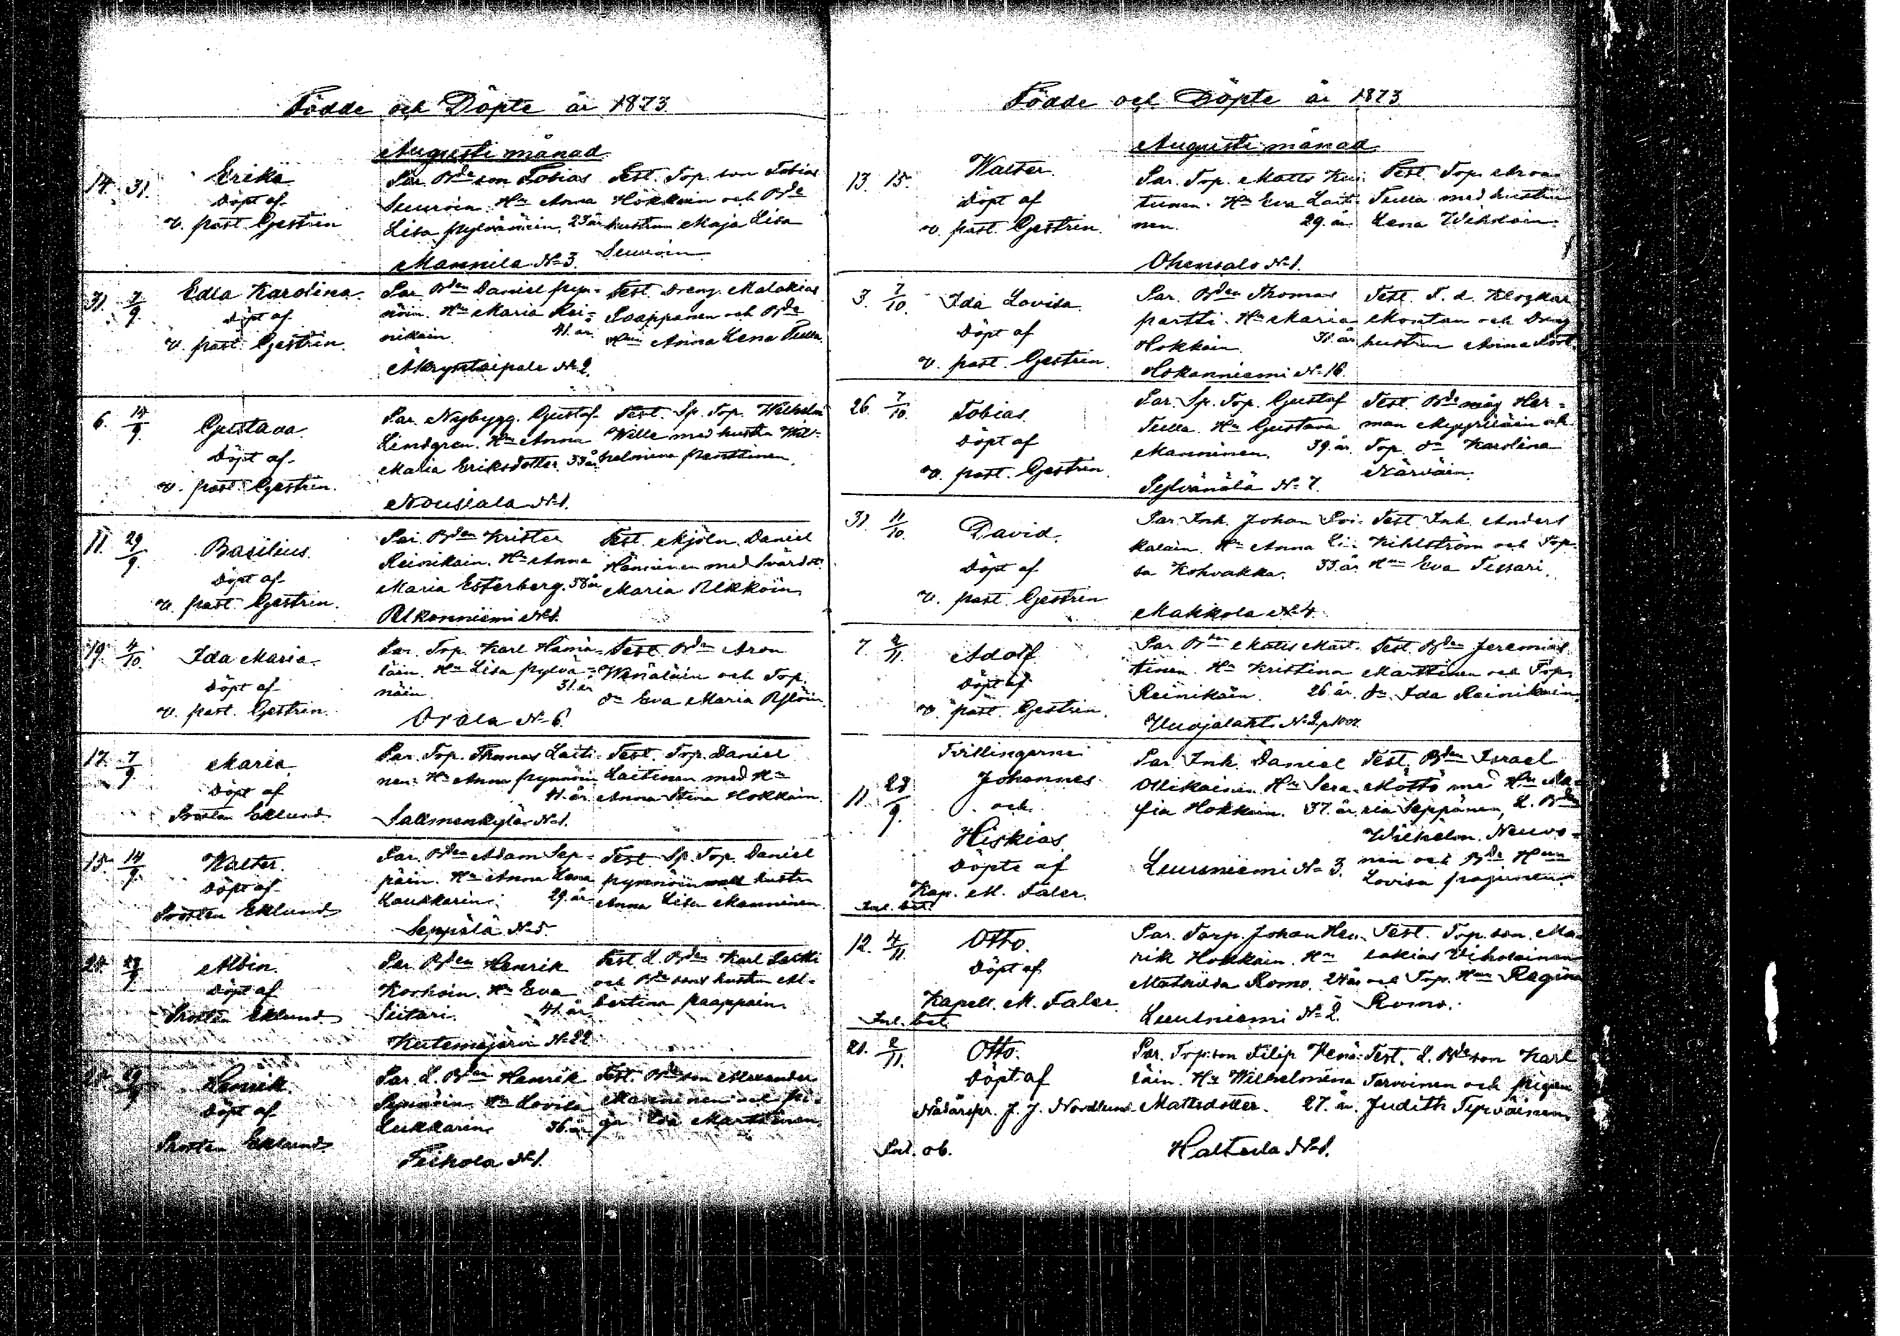 Födde och Döpte år 1873.
Augusti månad
14. 31. Erika
Döpt af
v. past. Gestrin
Par. Bde son Tobias
Hn Anna
Lisa Pylvänäin. 23 år
Mannila No 3.
Test. Top. son Tobias
Hokkain och Bde
hustrun Maja Lisa
31. 7/9 Edla Karolina.
Döpt af
v. past. Gestrin.
Par. Bden Daniel Pyn-
nöin. Hn Maria Rei-
nikain. 41 år
No 2.
Test. Dreng. Malakias
Paappanen och Bde
Hun Anna Lena Tulla.
6. 14/9 Gustava.
Döpt af
v. past. Gestrin.
Par. Nybygg. Gustaf
Lindgren. Hn Anna
Maria Eriksdotter. 33 år
Nousiala No 1.
Test. Sp. Top. Wilhelm
Wille med hustru Wil-
helmina
11. 29/9 Basilius.
Döpt af
v. past. Gestrin.
Par. Bden Krister
Reinikain. Hn Anna
Maria Esterberg. 38 år
Ukkonniemi No 1.
Test. Mjöln. Daniel
Hänninen med
Maria Ukkoin
19. 4/10 Ida Maria.
Döpt af
v. past. Gestrin.
Par. Top. Karl Hämä-
läin. Hn Lisa Pylvä-
näin. 31 år
Orala No 6.
Test. Bden Aron
Wenäläin och Top.
dn Eva Maria
17. 7/9 Maria
Döpt af
Prosten Eklund
Par. Top. Thomas Laiti-
nen. Hn Anna Pynnöin
41 år
Salmenkylä No 1.
Test. Top. Daniel
Laitinen med Hn
Anna Stina Hokkain.
15. 14/9 Walter.
Döpt af
Prosten Eklund
Par. Bden Adam Sep-
päin. Hn Anna Lena
Laukkarin. 29 år
Seppälä No 5.
Test. Sp. Top. Daniel
Pynnöin med hustru
Anna Lisa Manninen.
Albin.
Döpt af
Prosten Eklund
Par. Bden Henrik
Korhoin. Hn Eva
Siitari. 41 år
Kutemajärvi No 22
Test. L. Bden Karl
och Bde sons hustru Al-
bertina Paappain.
Henrik
Döpt af
Prosten Eklund
Par. L. Bden Henrik
Pynnöin. Hn Lovisa
Liukkarin. 36 år
No 1.
Test. Bde son Alexander
Manninen och Pi-
ga Eva Marttinen
Födde och Döpte år 1873.
Augusti månad
13. 15. Walter.
Döpt af
v. past. Gestrin.
Par. Top. Matts
tunen. Hn Eva Laiti-
nen. 29 år
Ohensalo No 1.
Test. Top. Aron
Tulla med hustru
Lena
3. 7/10 Ida Lovisa.
Döpt af
v. past. Gestrin.
Par. Bden Thomas
Partti. Hn Maria
Hokkain. 31 år
Hokanniemi No 16.
Test. T. d. Klockar.
Montan och Dreng
hustrun Anna
26. 7/10 Tobias.
Döpt af
v. past. Gestrin
Par. Sp. Top. Gustaf
Tulla. Hn Gustava
Manninen. 39 år
No 7.
Test. Bde måg Her-
man och
Top. dn Karolina
Närväin.
31. 11/10 David.
Döpt af
v. past. Gestrin
Par. Inh. Johan Poi-
kalain. Hn Anna Li-
sa Kohvakka. 33 år
Makkola No 4.
Test. Inh. Anders
Kihlström och Top.
Hun Eva Tissari.
7. 2/11 Adolf
Döpt af
v. past. Gestrin.
Par. Bden Matts Mart-
tinen. Hn Kristina
Reinikain. 26 år
No 2
Test. Bden Jeremias
Marttinen och Top.
dn Ida Reinikain
Tvillingarne
11. 28/9. Johannes
och
Hiskias.
Döpte af
Kap. M. Faler.
Inl. bet.
Par. Inh. Daniel
Ollikainen. Hn Sera-
fia Hokkain. 37 år
Luusniemi No 3.
Test. Bden Israel
Möttö med Hn Ma-
ria Seppänen, L. Bden
Wilhelm. Neuvo-
nen och Bde Hun
Lovisa
12. 4/11 Otto.
Döpt af
Kapell. M. Faler
Inl. bet.
Par. Torp. Johan Hen-
rik Hokkain. Hn
Mathilda Romo. 24 år
Luusniemi No 2.
Test. Top. son Ma-
lakias Viholainen
och Top. Hun Regina
Romo.
21. 2/11. Otto.
Döpt af
Nådårspr. J. J. Nordlund
Inl. ob.
Par. Top. son Filip Venä-
läin. Hn Wilhelmina
Mattsdotter. 27. år
Halttula No 1.
Test. L. Bde son Karl
Tarvainen och Pigan
Judith